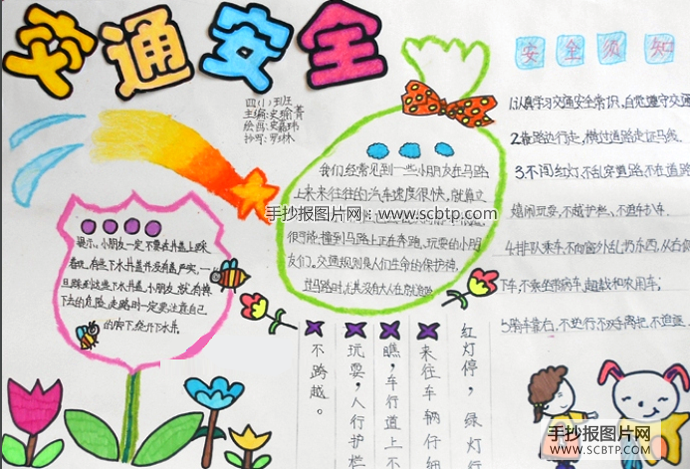 交通安全
四(1)班
主编:史瑜菁
绘画:
抄写:
安全须知
1.认真学习交通安全常识,自觉遵守交通
2.靠路边行走,横过道路走斑马线.
3.不闯红灯,不乱穿道路,不在道路
嬉闹玩耍,不越护栏、不追车扒车.
4.排队乘车,不向窗外乱扔东西,从右侧
下车,不乘坐报病车,超载和农用车;
5.骑车靠右,不逆行不双手离把,不追逐
我们经常见到一些小朋友在马路
上来来往往的汽车速度很快,
手抄报图片网:www.scbtp.com
很可能撞到马路上正在奔跑、玩耍的小朋
友们。交通规则是人们生命的保护神,
过马路时,尤其没有大人在你
提示:小朋友一定不要在井盖上踩
着玩,有些下水井盖并没有盖严实,一
旦踩
下去的危险,走路时一定要注意自己
的脚下,绕开下水井.
红灯停,绿灯行
来往车辆仔细
瞧,车行道上不
玩耍,人行护栏
不跨越。
手抄报图片网
SCBTP.COM